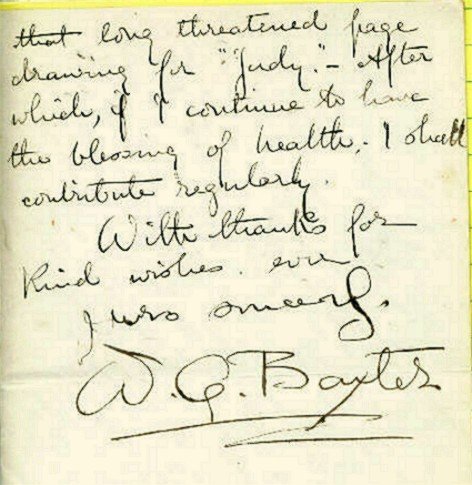 that long threatened page
drawing for "Judy." - After
which, if I continue to have
the blessing of health, - I shall
contribute regularly.
With thanks for
kind wishes. ever
yrs sincerely.
W. G. Baxter